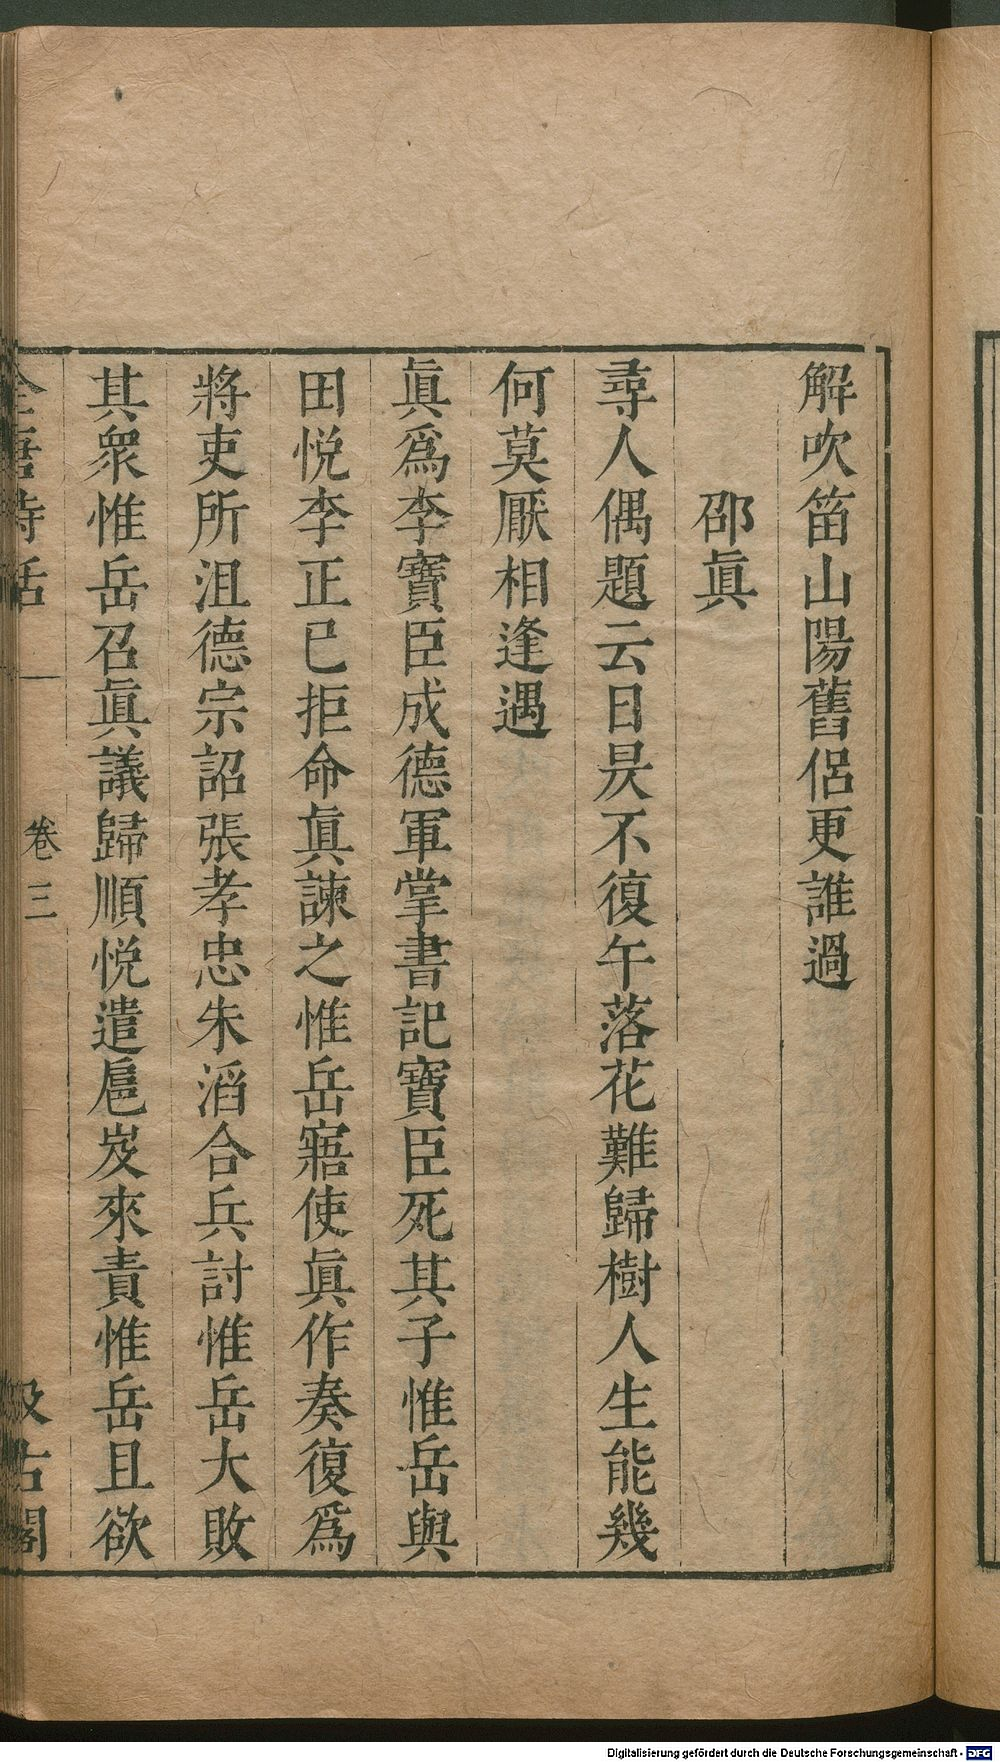 解吹笛山陽舊侶更誰過
邵眞
尋人偶題云日昃不復午落花難歸樹人生能幾
何莫厭相逢遇
眞爲李寶臣成德軍掌書記寶臣死其子惟岳與
田悅李正已拒命眞諫之惟岳寤使眞作奏復爲
將吏所沮德宗詔張孝忠朱滔合兵討惟岳大敗
其衆惟岳召眞議歸順悅遣扈岌來責惟岳且欲
全唐詩話
卷三
汲古閣
Digitalisierung gefördert durch die Deutsche Forschungsgemeinschaft - DFG